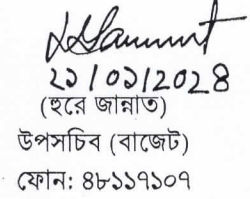 ২১/০১/2024
(হুরে জান্নাত)
উপসচিব (বাজেট)
ফোন: ৪৮১১৭১০৭